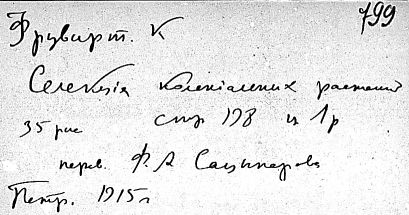 799
Фрувирт. К
Селекція колоніальных растений
35 рис стр 198 ц 1 р
перев. Ф. А Сацыперова
Петр. 1915 г